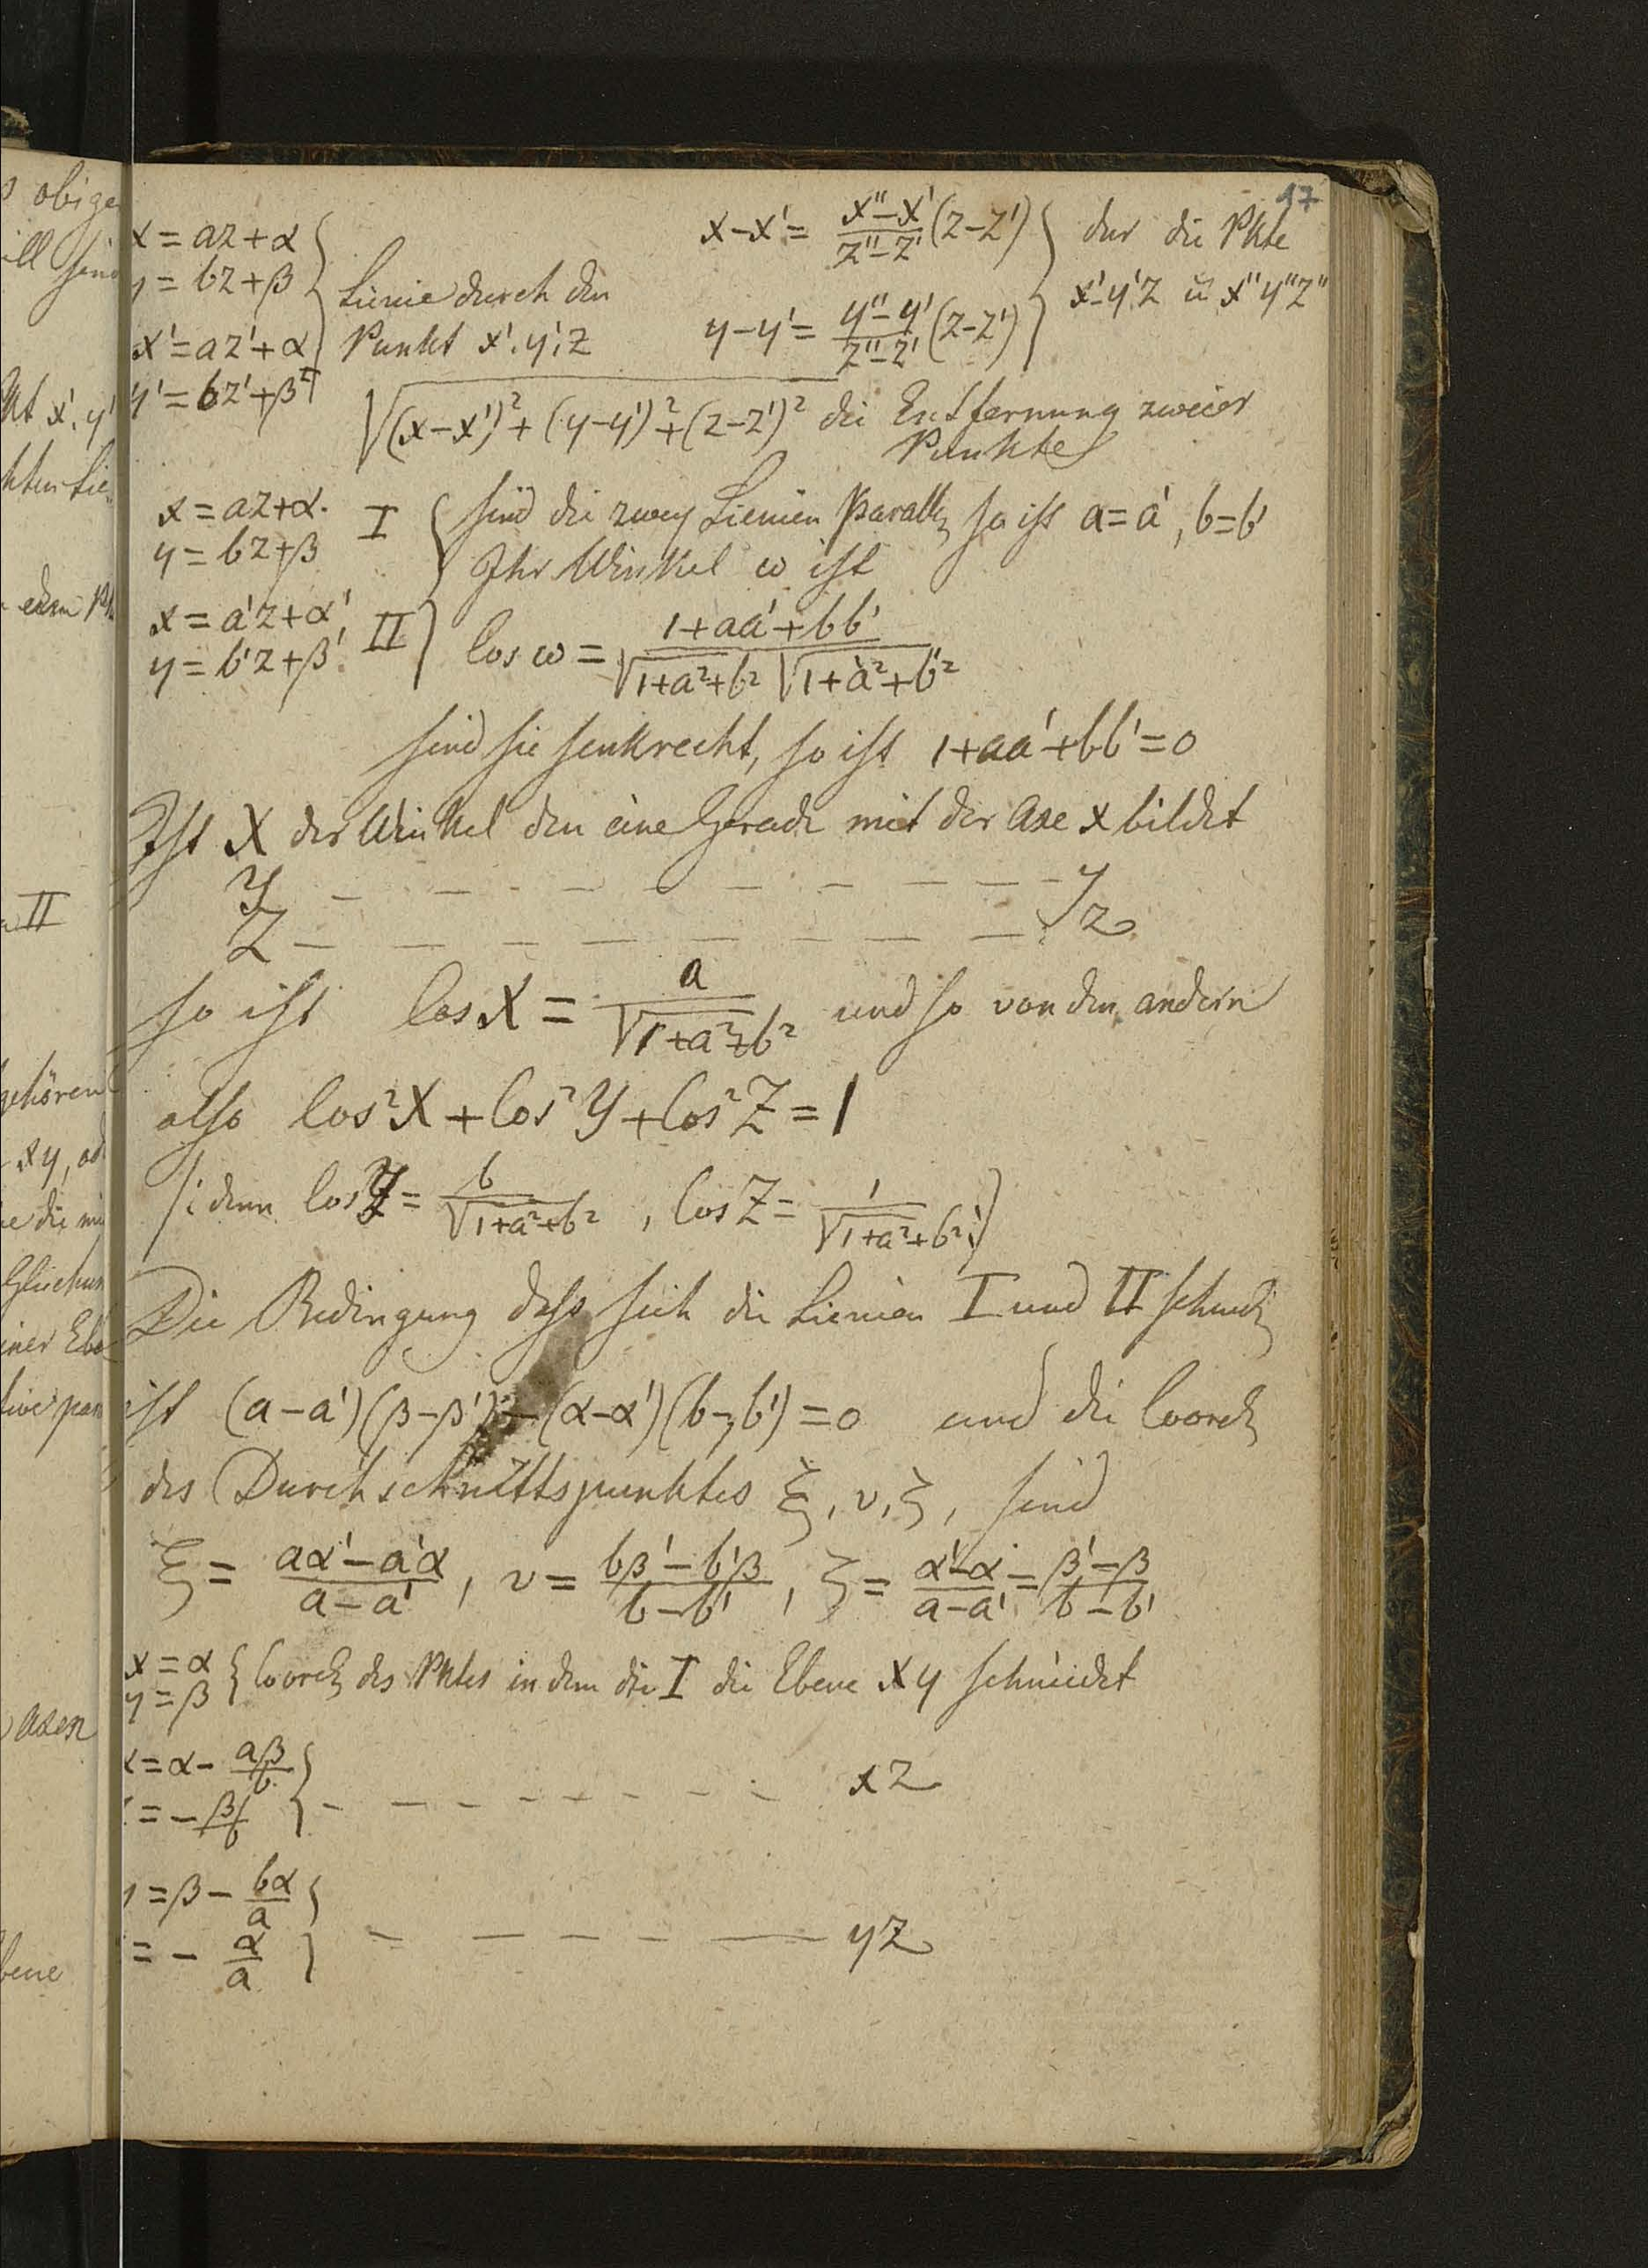 47
x = az+α
y = bz+β
x' = az'+α
y' = bz'+β
Linie durch den
Punkt x', y', z
x−x' = (x''−x')/(z''−z') (z−z')
y−y' = (y''−y')/(z''−z') (z−z')
dur die Pkte
x' y' z u x'' y'' z''
√(x−x')²+(y−y')²+(z−z')² die Entfernung zweier
Punkte
x = az+α
y = bz+β I
x = a'z+α'
y = b'z+β' II
sind die zwey Linien parall so ist a=a', b=b'
Ihr Winkel ω ist
Cos ω = (1+aa'+bb')/(√1+a²+b² √1+a'²+b'²)
sind sie senkrecht, so ist 1+aa'+bb'=0
Ist X der Winkel den eine Gerade mit der Axe x bildet
Y — — — — — — — — — y
Z — — — — — — — — — z
so ist Cos X = a/√1+a²+b² und so von den andern
also Cos²X + Cos²Y + Cos²Z = 1
(: denn Cos Y = b/√1+a²+b² , Cos Z = 1/√1+a²+b² :)
Die Bedingung dass sich die Linien I und II schneid
ist (a−a')(β−β') − (α−α')(b−b') = 0 und die Coord
des Durchschnittspunktes ξ, υ, ζ, sind
ξ = (aα'−a'α)/(a−a') , υ = (bβ'−b'β)/(b−b') , ζ = (α'−α)/(a−a') = (β'−β)/(b−b')
x = α
y = β { Coord des Pktes in dem die I die Ebene xy schneidet
x = α − aβ/b
= − β/b } — — — — — — — — xz
= β − bα/a
= − α/a } — — — — — yz
obige
xy,
gehören
II
Axen